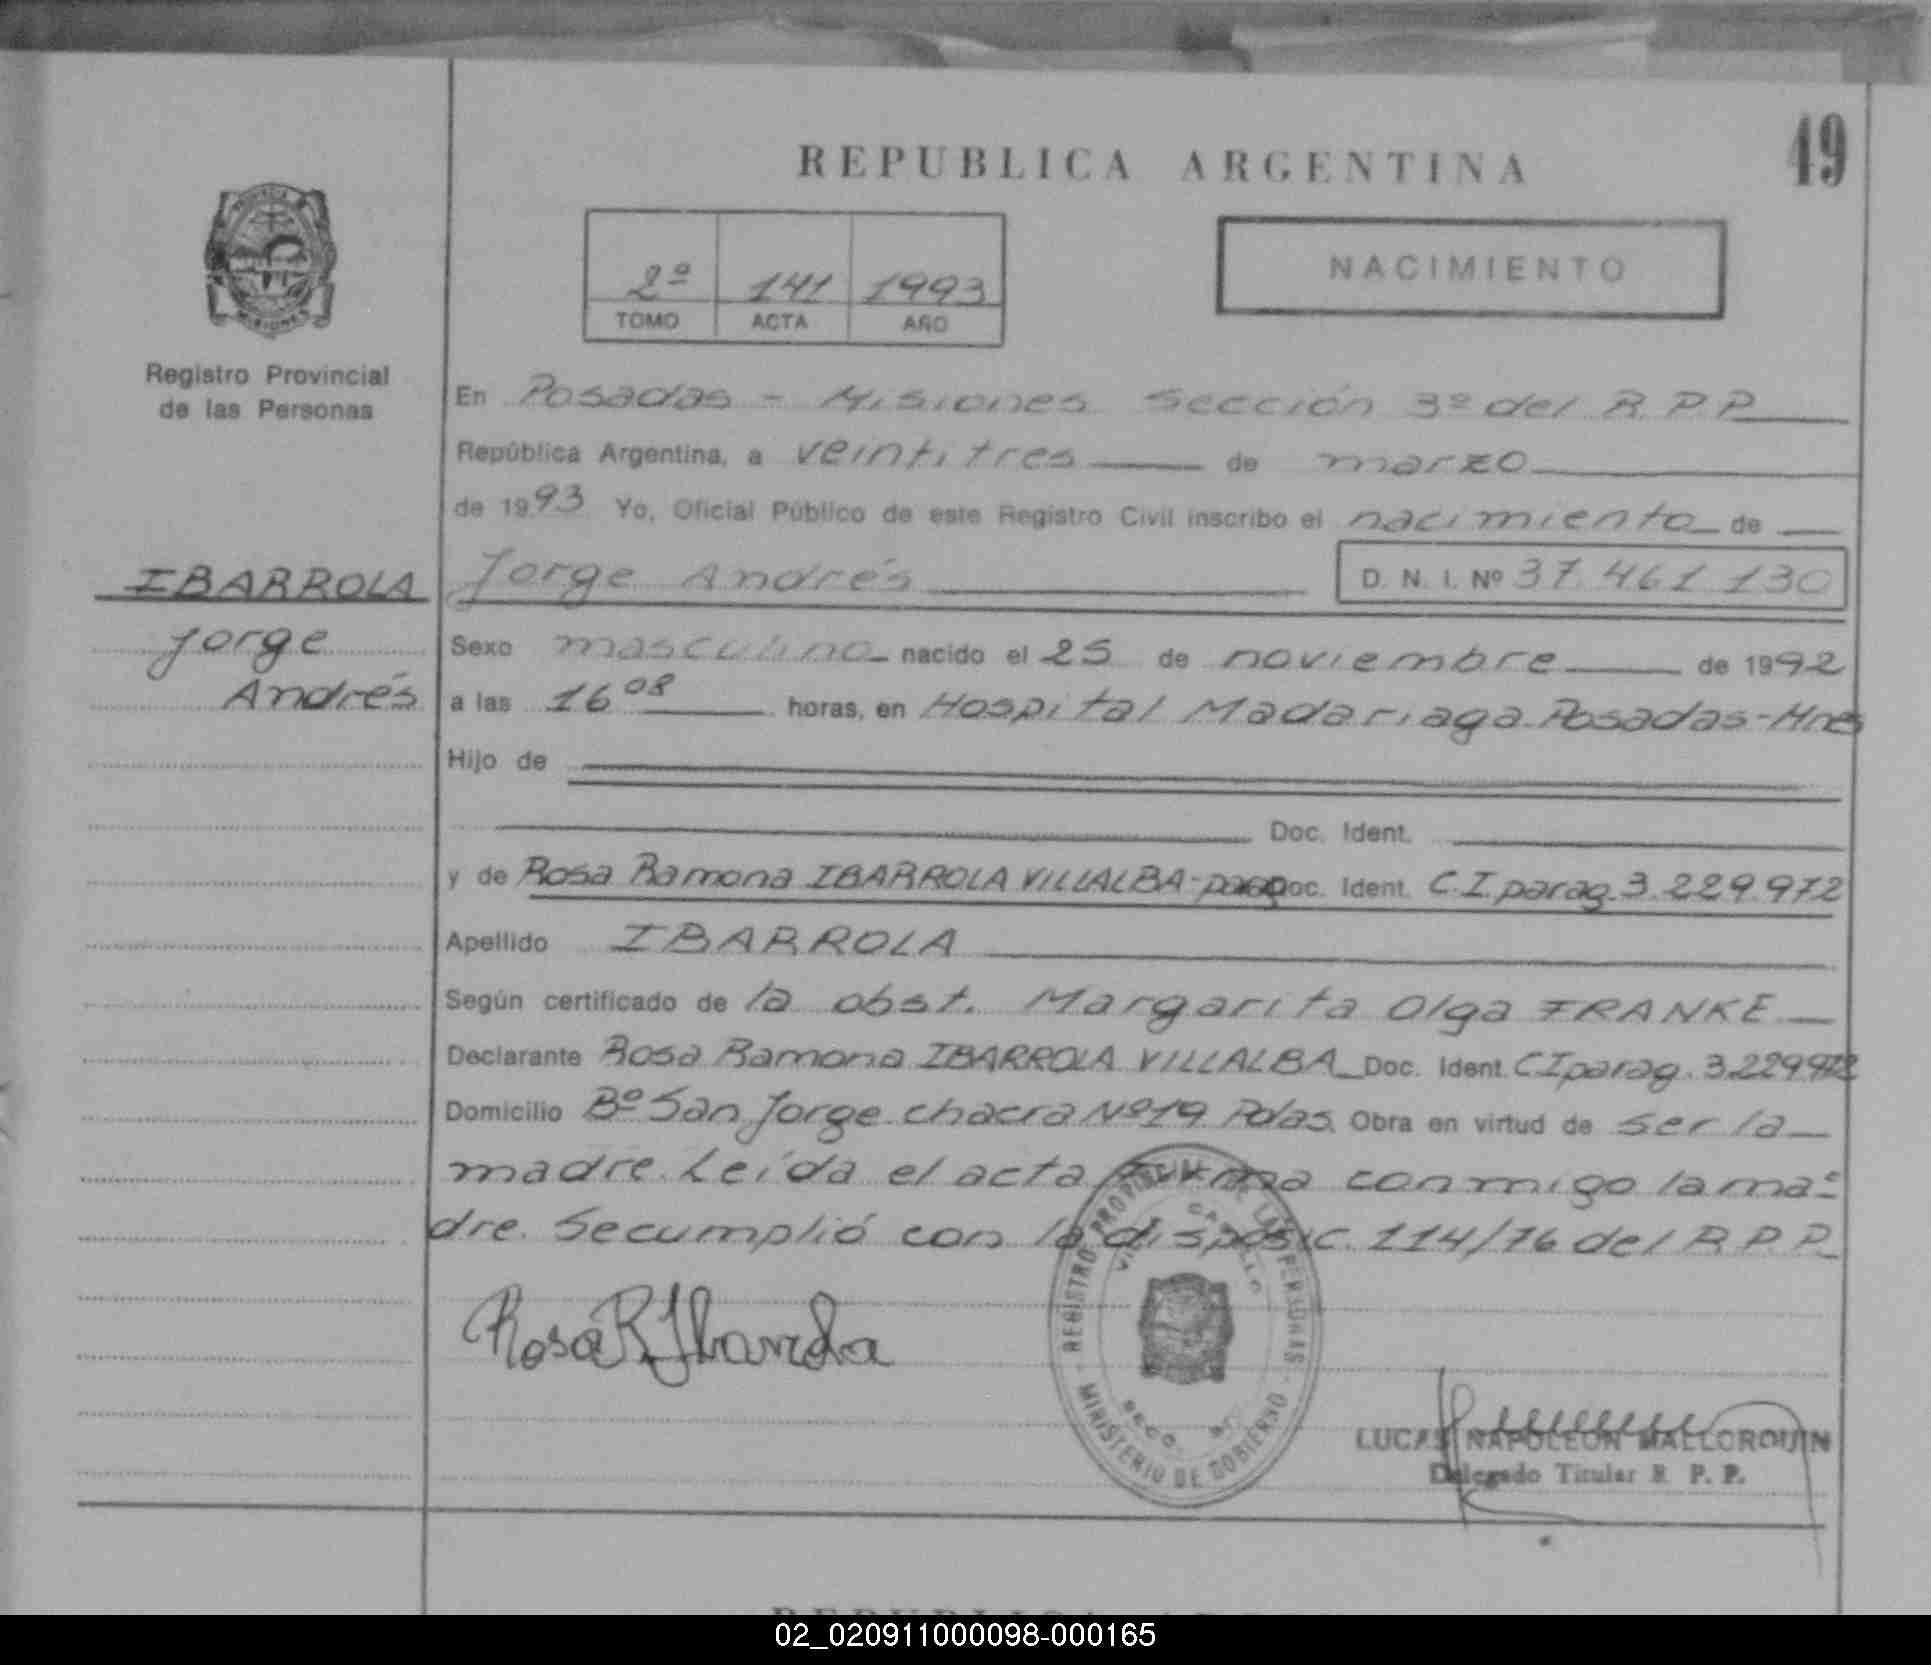 49
REPUBLICA ARGENTINA
2º 141 1993
TOMO ACTA AÑO
NACIMIENTO
MISIONES
Registro Provincial
de las Personas
En Posadas - Misiones Sección 3º del R.P.P.
República Argentina, a veintitres de marzo
de 1993 Yo, Oficial Público de este Registro Civil inscribo el nacimiento de
IBARROLA
Jorge
Andrés
Jorge Andrés D. N. I. Nº 37.461.130
Sexo masculino nacido el 25 de noviembre de 1992
a las 16 08 horas, en Hospital Madariaga Posadas-Mnes
Hijo de
Doc. Ident.
y de Rosa Ramona IBARROLA VILLALBA-parag Doc. Ident. C.I.parag.3.229.972
Apellido IBARROLA
Según certificado de la obst. Margarita Olga FRANKE
Declarante Rosa Ramona IBARROLA VILLALBA Doc. Ident. CIparag.3.229972
Domicilio Bº San Jorge chacra Nº19 Pdas. Obra en virtud de ser la
madre. Leída el acta firma conmigo la ma-
dre. Secumplió con la disposic. 114/76 del R.P.P.
Rosa R. Ibarrola
REGISTRO PROVINCIAL DE LAS PERSONAS
MINISTERIO DE GOBIERNO
LUCAS NAPOLEON MALLORQUIN
Delegado Titular R. P. P.
02_020911000098-000165